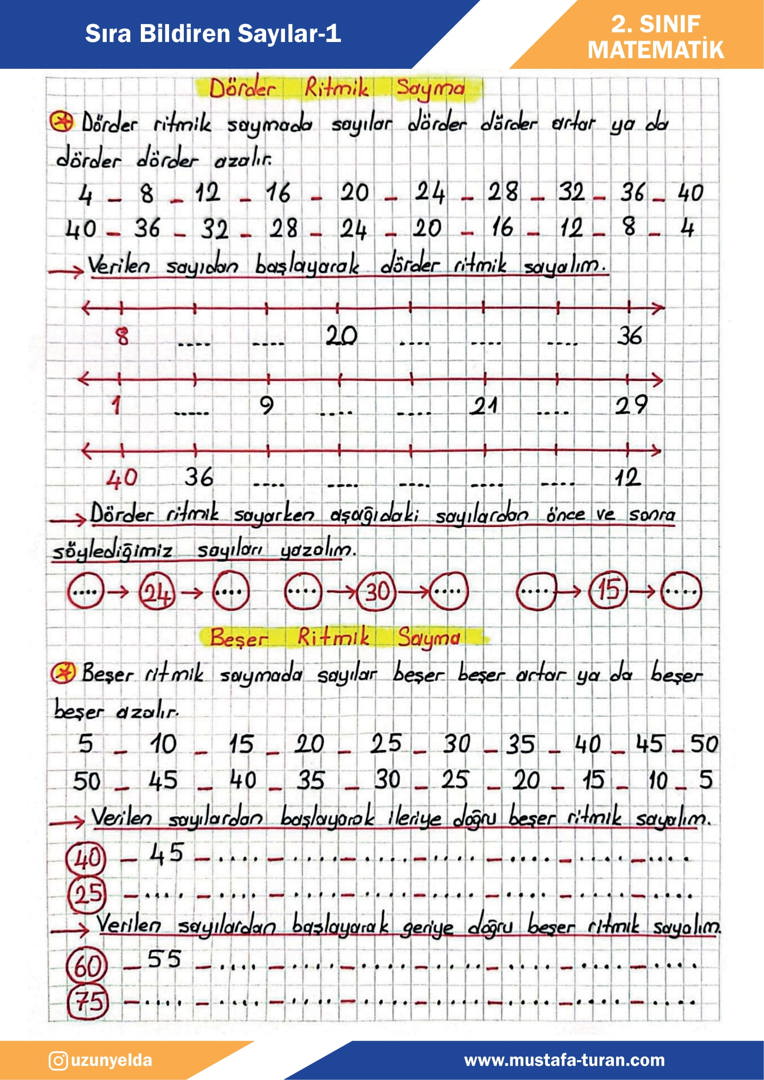 Sıra Bildiren Sayılar-1
2. SINIF
MATEMATİK
Dörder Ritmik Sayma
* Dörder ritmik saymada sayılar dörder dörder artar ya da
dörder dörder azalır.
4 - 8 - 12 - 16 - 20 - 24 - 28 - 32 - 36 - 40
40 - 36 - 32 - 28 - 24 - 20 - 16 - 12 - 8 - 4
→ Verilen sayıdan başlayarak dörder ritmik sayalım.
8 .... .... 20 .... .... .... 36
1 ..... 9 .... .... 21 .... 29
40 36 .... .... .... .... .... 12
→ Dörder ritmik sayarken aşağıdaki sayılardan önce ve sonra
söylediğimiz sayıları yazalım.
.... → 24 → .... .... → 30 → .... .... → 15 → ....
Beşer Ritmik Sayma
* Beşer ritmik saymada sayılar beşer beşer artar ya da beşer
beşer azalır.
5 - 10 - 15 - 20 - 25 - 30 - 35 - 40 - 45 - 50
50 - 45 - 40 - 35 - 30 - 25 - 20 - 15 - 10 - 5
→ Verilen sayılardan başlayarak ileriye doğru beşer ritmik sayalım.
40 - 45 - .... - .... - .... - .... - .... - .... - ....
25 - .... - .... - .... - .... - .... - .... - .... - ....
→ Verilen sayılardan başlayarak geriye doğru beşer ritmik sayalım.
60 - 55 - .... - .... - .... - .... - .... - .... - ....
75 - .... - .... - .... - .... - .... - .... - .... - ....
uzunyelda
www.mustafa-turan.com